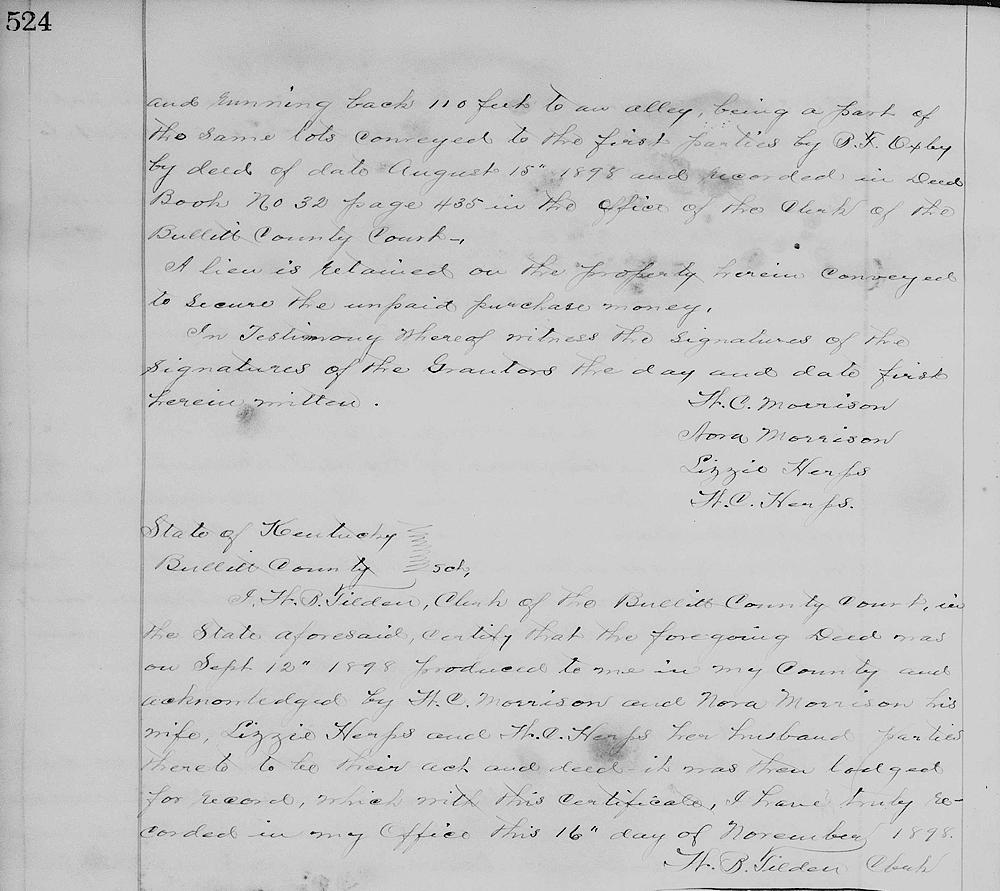 524
and running back 110 feet to an alley, being a part of
the same lots conveyed to the first parties by P.F. Oxley
by deed of date August 15" 1898 and recorded in Deed
Book No 32 page 435 in the office of the Clerk of the
Bullitt County Court.
A lien is retained on the property herein conveyed
to secure the unpaid purchase money.
In Testimony whereof witness the signatures of the
signatures of the Grantors the day and date first
herein written.
H.C. Morrison
Nora Morrison
Lizzie Herps
H.C. Herps.
State of Kentucky
Bullitt County sct,
I, H.B. Tilden, Clerk of the Bullitt County Court, in
the State aforesaid, certify that the foregoing Deed was
on Sept 12" 1898 produced to me in my County and
acknowledged by H.C. Morrison and Nora Morrison his
wife, Lizzie Herps and H.C. Herps her husband parties
thereto to be their act and deed - it was then lodged
for record, which with this certificate, I have truly re-
corded in my Office this 16" day of November 1898.
H.B. Tilden Clerk